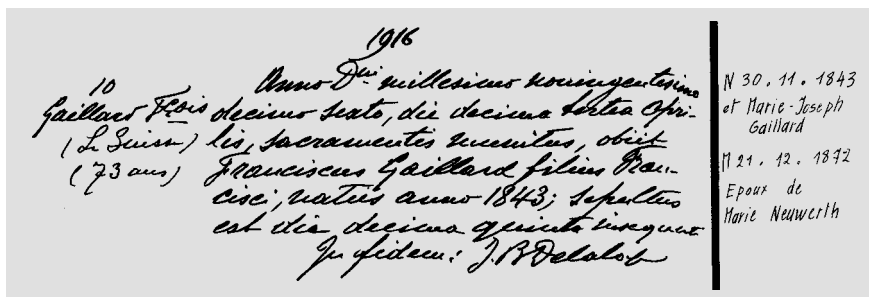 1916
10
Gaillard Fçois
(Le Suisse)
(73 ans)
Anno Dni millesimo noningentesimo
decimo sexto, die decima tertia Apri-
lis, sacramentis munitus, obiit
Franciscus Gaillard filius Fran-
cisci, natus anno 1843; sepultus
est die decima quinta
In fidem: J. B. Delaloye
N 30.11.1843
et Marie-Joseph
Gaillard
M 21.12.1872
Epoux de
Marie Neuwerth